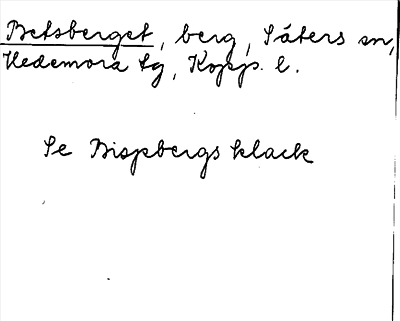 Betsberget, berg, Säters sn,
Hedemora tg, Kopp. l.
Se Bispbergs klack